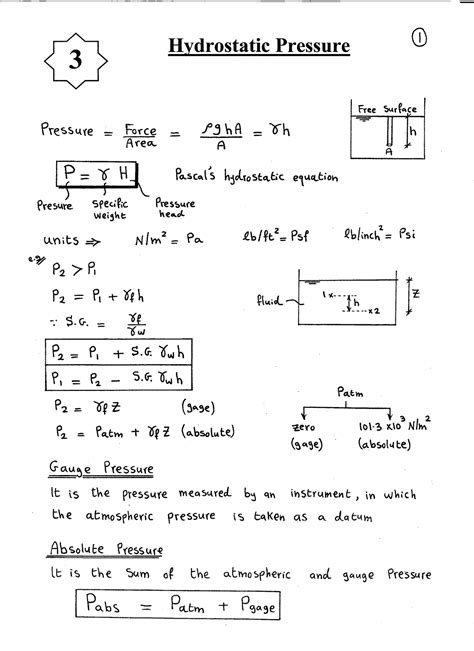 3
Hydrostatic Pressure
1
Pressure = Force/Area = ρghA/A = γh
Free Surface
h
A
P = γ H
Pascal's hydrostatic equation
Presure
Specific weight
Pressure head
units ⇒ N/m² = Pa lb/ft² = Psf lb/inch² = Psi
e.g/
P₂ > P₁
P₂ = P₁ + γf h
fluid
1 x
h
x 2
Z
∵ S.G. = γf/γw
P₂ = P₁ + S.G. γw h
P₁ = P₂ - S.G. γw h
P₂ = γf Z (gage)
P₂ = Patm + γf Z (absolute)
Patm
zero
(gage)
101.3 x10³ N/m²
(absolute)
Gauge Pressure
It is the pressure measured by an instrument, in which
the atmospheric pressure is taken as a datum
Absolute Pressure
It is the Sum of the atmospheric and gauge Pressure
Pabs = Patm + Pgage